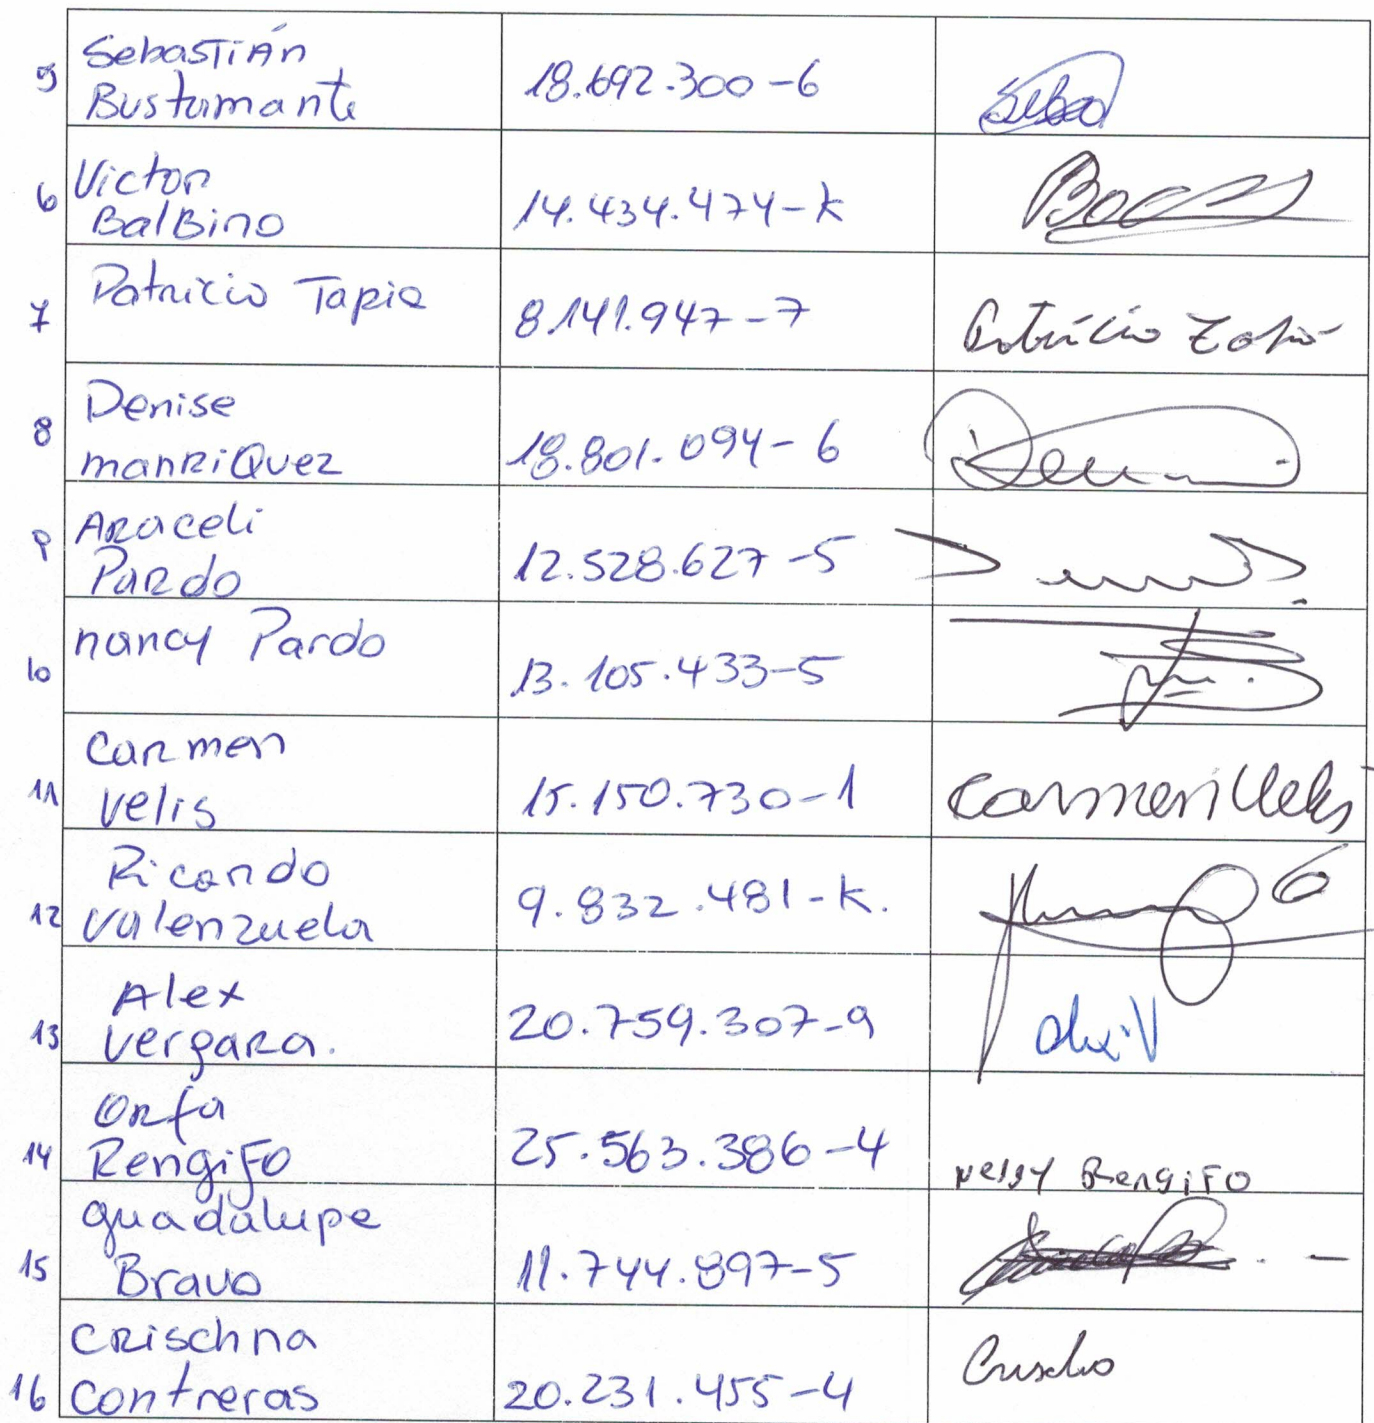 5 Sebastián
Bustamante 18.692.300-6
6 Victor
Balbino 14.434.474-k
7 Patricio Tapia 8.141.947-7 Patricio Tapia
8 Denise
manriquez 18.801.094-6
9 Araceli
Pardo 12.528.627-5
10 nancy Pardo 13.105.433-5
11 Carmen
velis 15.150.730-1 Carmen Velis
12 Ricardo
valenzuela 9.832.481-k.
13 Alex
vergara. 20.759.307-9 Alex.V
14 Orfa
Rengifo 25.563.386-4 Nelsy Rengifo
15 guadalupe
Bravo 11.744.897-5
16 Crischna
Contreras 20.231.455-4